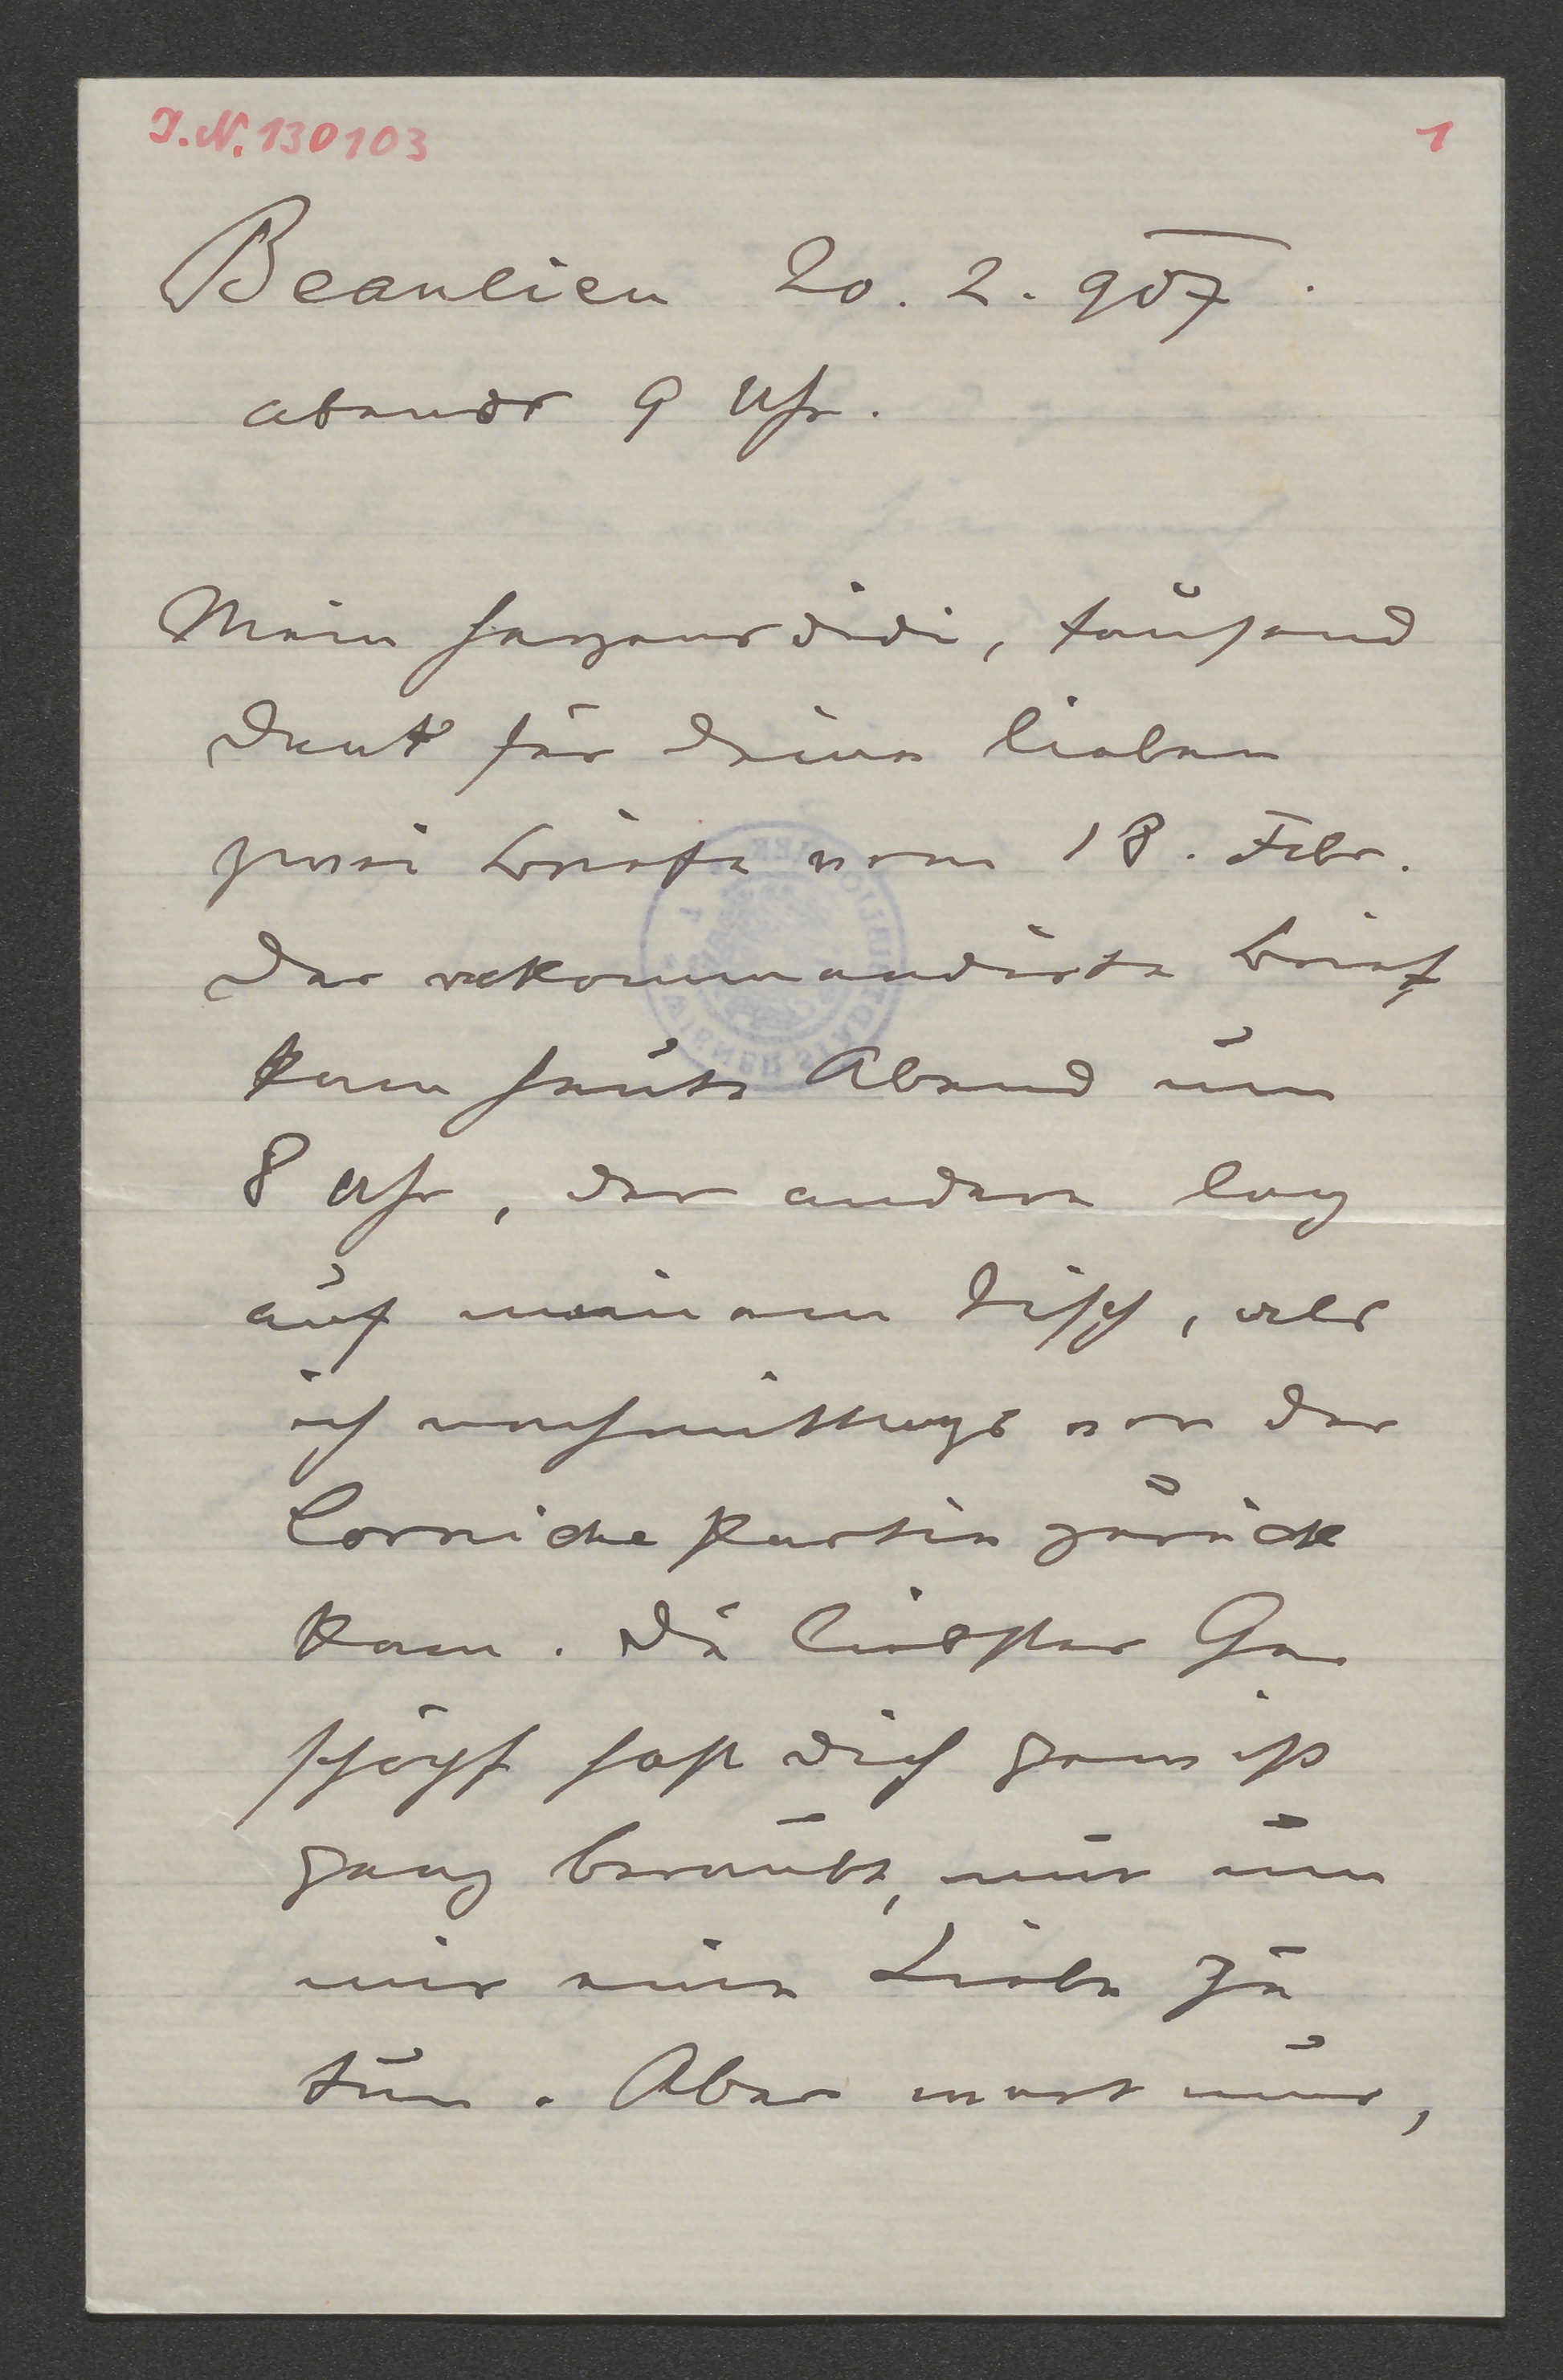 I.N. 130103
1
Beaulieu 20. 2. 907.
abends 9 Uhr.
Mein Herzensdidi, tausend
Dank für Deine lieben
zwei Briefe vom 18. Febr.
Der rekommandirte Brief
kam heute Abend um
8 Uhr, der andere lag
auf meinem Tisch, als
ich nachmittags von der
Corniche Partie zurück
kam. Du liebster Ge
schöpf hast Dich gewiß
ganz beraubt, nur um
mir eine Liebe zu
tun. Aber wart nur,